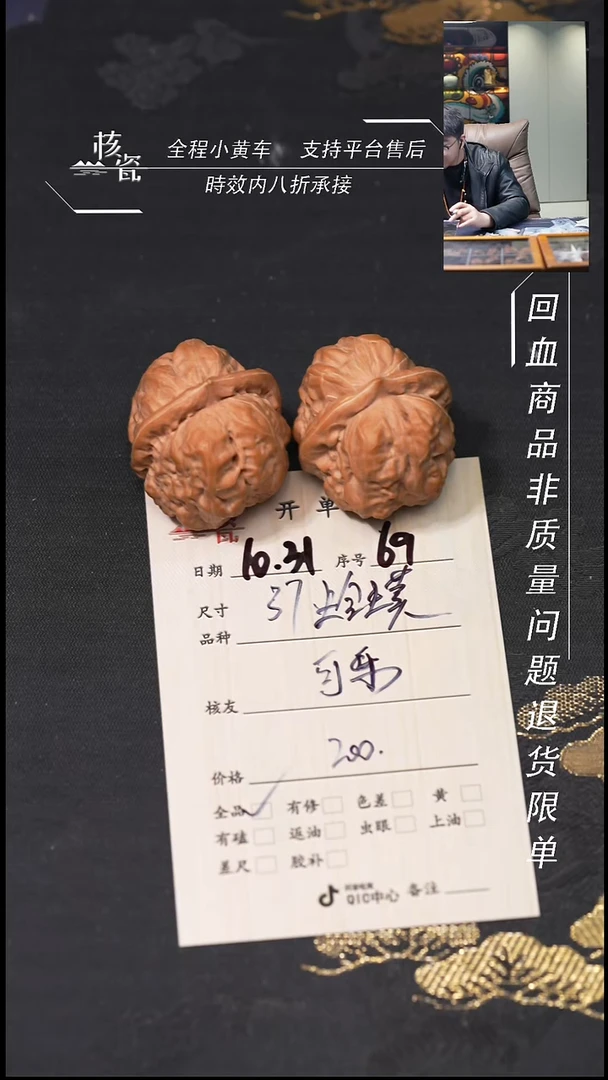 核瓷
全程小黄车 支持平台售后
時效内八折承接
回血商品非质量问题退货限单
瓷 开单
日期 10.31 序号 69
尺寸 37
品种
核友
价格 200.
全品 有修 色差 黄
有磕 返油 虫眼 上油
差尺 胶补
QIC中心 备注